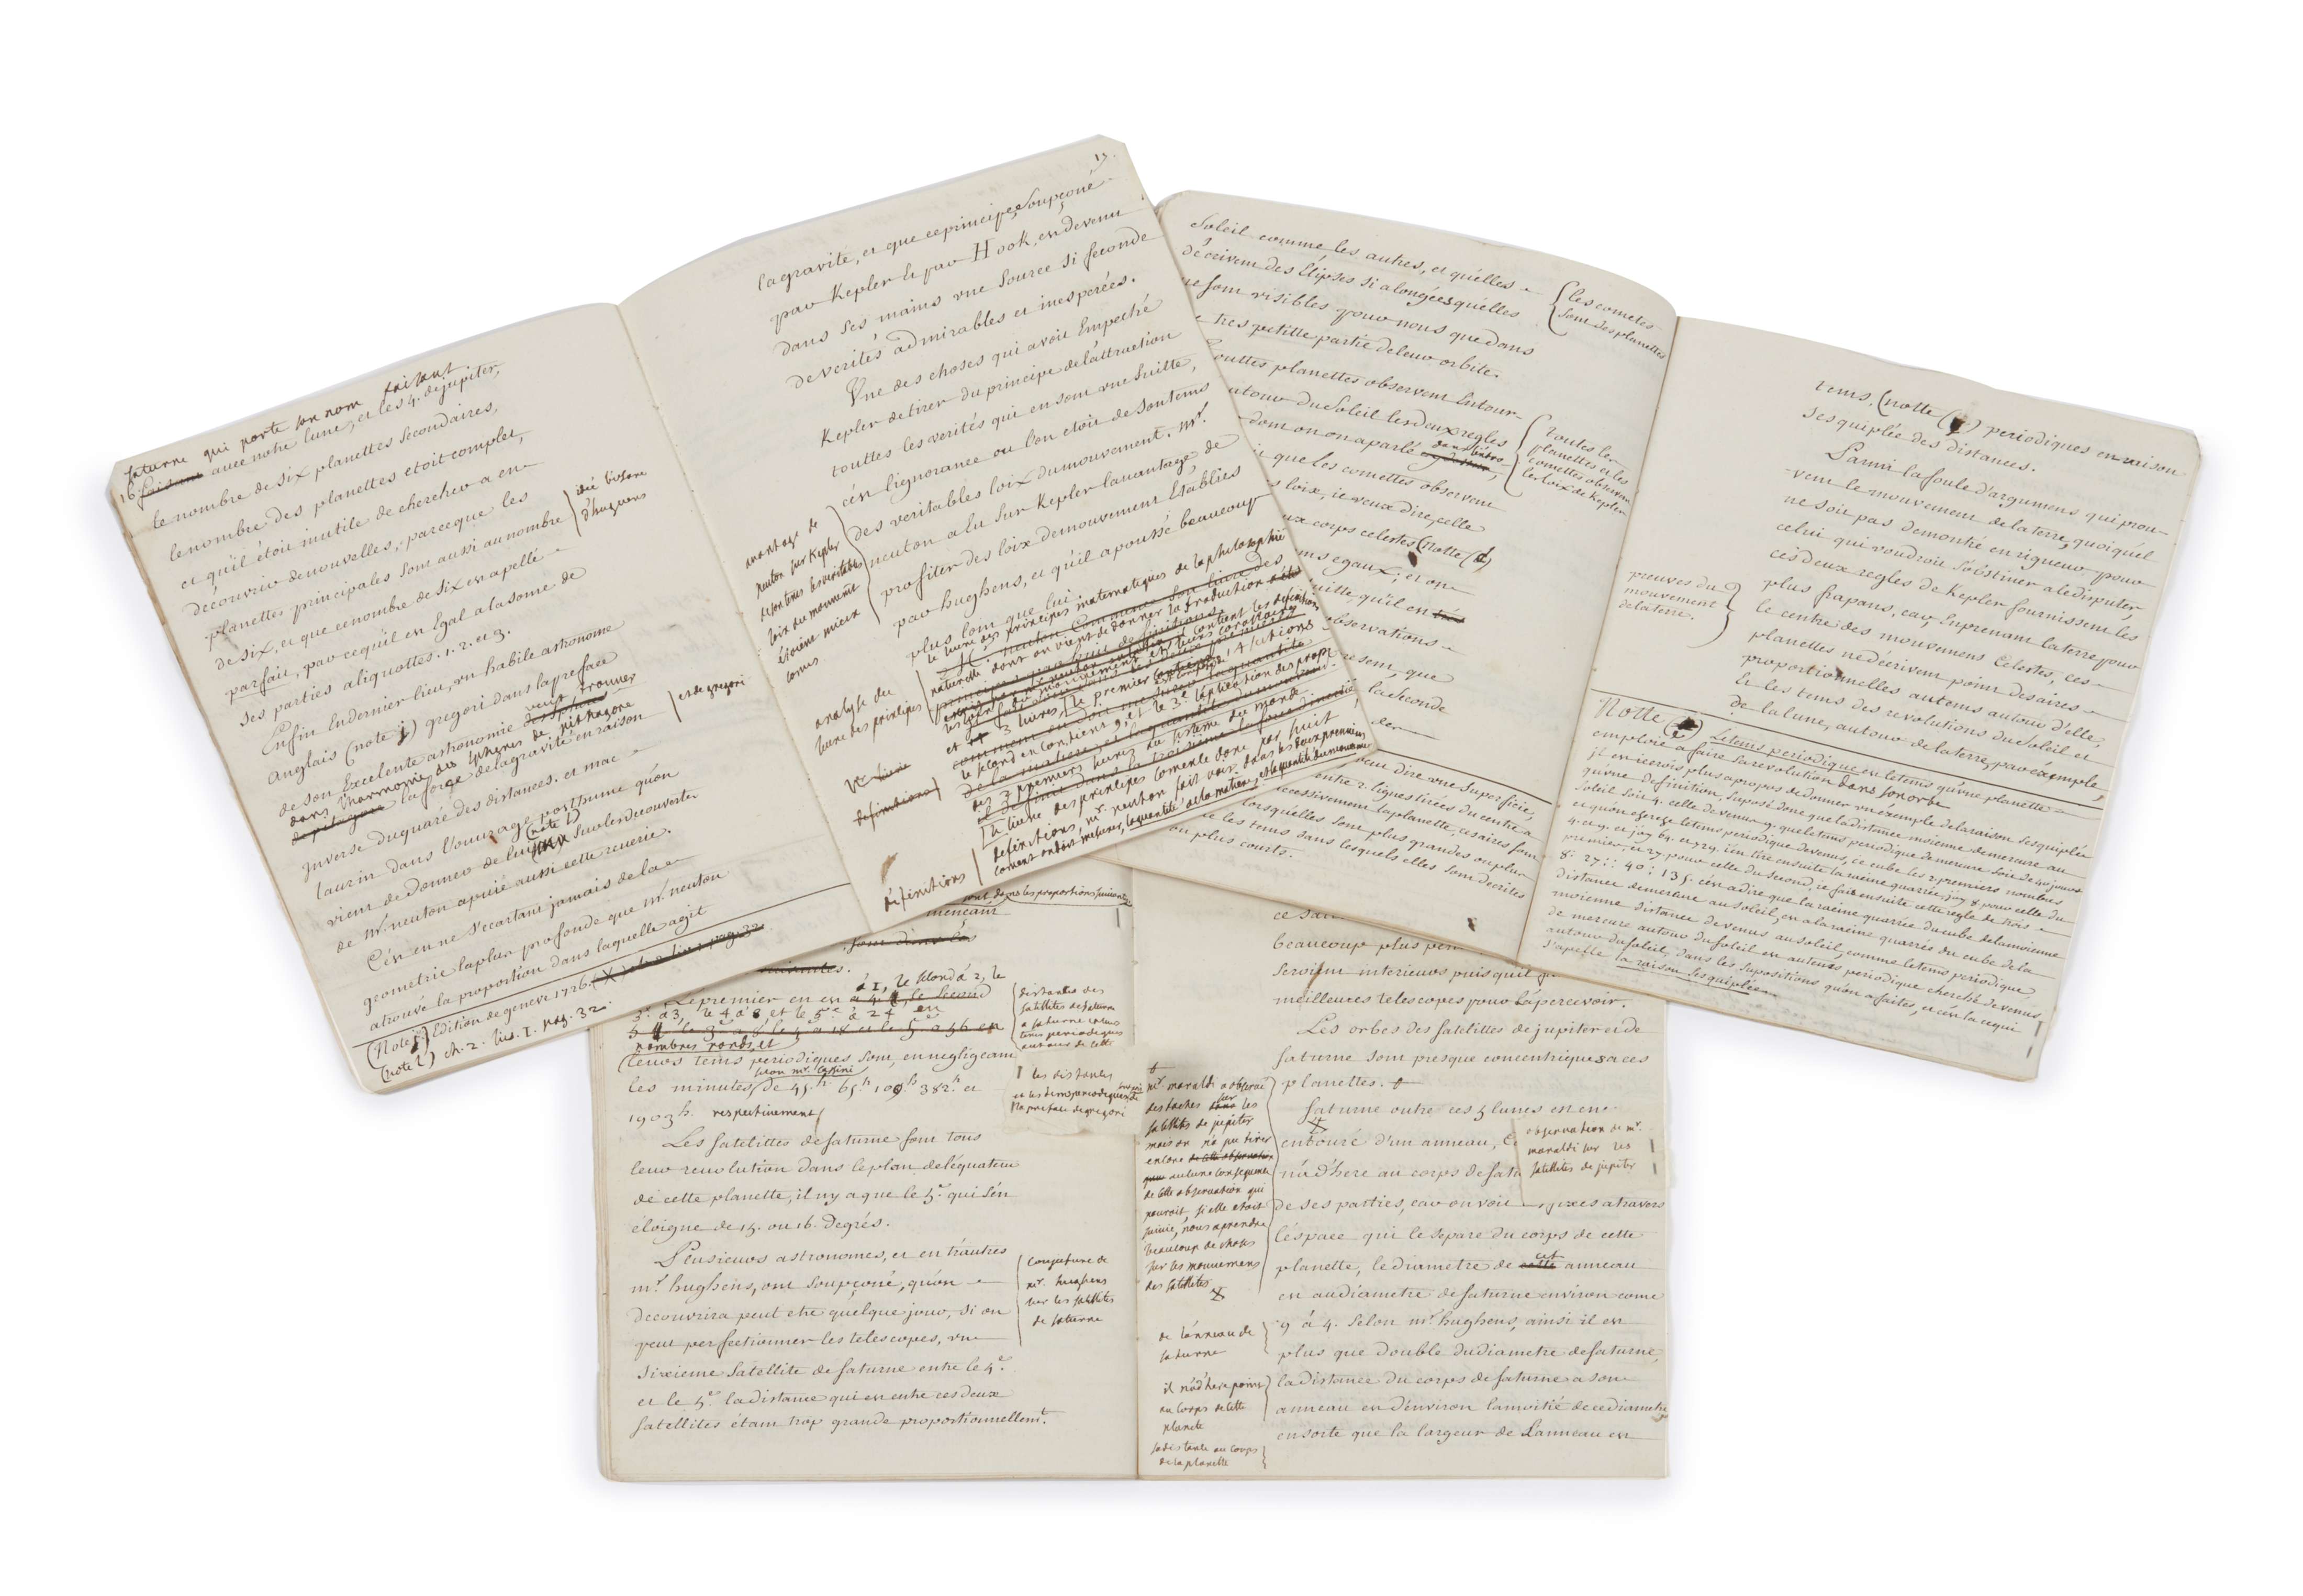 saturne qui porte son nom faisant
16 faisant avec notre lune, et les 4. de jupiter,
le nombre de six planettes secondaires,
le nombre des planettes etoit complet,
et qu'il étoit inutile de chercher a en
découvrir de nouvelles, parceque les
planettes principales sont aussi au nombre
de six, et que ce nombre de six est apellé
parfait, par ce qu'il est égal a la some de
ses parties aliquottes. 1. 2. et 3.
idée bisare
d'hugens
Enfin en dernier lieu, un habile astronome
Anglais (note i) gregori dans la preface
de son Excelente astronomie veut trouver
dans l'harmonie des spheres de pithagore
la force de la gravité en raison
et de gregori
inverse du quaré des distances. et mac
laurin dans l'ouvrage posthume qu'on
vient de donner de lui (note l) sur les decouvertes
de Mr. neuton apuie aussi cette reverie.
C'est en ne s'ecartant jamais de la
geometrie la plus profonde que Mr. neuton
a trouvé la proportion dans laquelle agit
(Note i) Edition de geneve 1726. (X) ch. 2. liv. 1. pag. 32
(note l) ch. 2. liv. I. pag. 32.
13.
la gravité, et que ce principe, soupçoné
par Kepler et par Hook, est devenu
dans ses mains une source si feconde
de verités admirables et inesperées.
Une des choses qui avoit empeché
Kepler de tirer du principe de l'attraction
touttes les verités qui en sont une suitte,
c'est l'ignorance ou l'on etoit de son tems
des veritables loix du mouvement. Mr.
neuton a eu sur Kepler l'avantage de
profiter des loix de mouvement établies
par hughens, et qu'il a poussé beaucoup
plus loin que lui.
avantage de
neuton sur Kepler
de son tems les veritables
loix du mouvement
étoient mieux
conus
le livre des principes matematiques de la philosophie
naturelle dont on vient de donner la traduction
analyse du
livre des principes
et 3 livres, le premier contient 14 sections
le second en contient 9, et le 3e. l'aplication des propr.
des 2 premiers livres au sistème du monde
1er livre
definitions
Le livre des principes comence donc par huit
definitions, Mr. neuton fait voir dans les deux premieres
coment on doit mesurer, la quantité de la matiere, et la quantité du mouvement
définitions
soleil comme les autres, et qu'elles
décrivent des élipses si alongées qu'elles
ne sont visibles pour nous que dans
tres petitte partie de leur orbite.
les cometes
sont des planettes
touttes planettes observent entour
autour du soleil les deux regles
dont on on a parlé dans l'intro-
que les comettes observent
loix, ie veux dire, celle
corps celestes (Notte (d)
tems egaux; et on
suitte, qu'il en
observations
present, que
la seconde
der
toutes les
planettes et les
comettes observent
les loix de Kepler
veut dire une superficie,
entre 2 lignes tirées du centre a
successivement la planette, ces aires sont
lorsqu'elles sont plus grandes ou plus
les tems dans lesquels elles sont decrites
ou plus courts.
tems, (notte (e) periodiques en raison
sesquiplée des distances.
Parmi la foule d'argumens qui prou-
vent le mouvement de la terre, quoiqu'il
ne soit pas demontré en rigueur pour
celui qui voudroit s'obstiner a le disputer,
ces deux regles de Kepler fournissent les
plus frapans, car, suprenant la terre pour
le centre des mouvemens celestes, ces
planettes ne décrivent point des aires
proportionnelles aux tems autour d'elle,
et les tems des revolutions du soleil et
de la lune, autour de la terre, par exemple,
preuves du
mouvement
de la terre.
Notte (e) Le tems periodique est le tems qu'une planette
emploie a faire sa revolution dans son orbe
Il est ie crois plus a propos de donner un exemple de la raison sesquiplée
qu'une definition, suposé donc que la distance moienne de mercure au
soleil soit 4. celle de venus 9. que le tems periodique de mercure soit de 40 jours
et qu'on cherche le tems periodique de venus, ie cube les 2 premiers nombres
4. et 9. et j'ay 64. et 729. i'en tire ensuite la racine quarrée, j'ay 8 pour celle du
premier, et 27 pour celle du second, ie fais ensuite cette regle de trois
8: 27:: 40: 135. c'est a dire que la racine quarrée du cube de la moienne
distance de mercure au soleil, est a la racine quarrée du cube de la
moienne distance de venus au soleil, comme le tems periodique
de mercure autour du soleil est au tems periodique cherché de venus
autour du soleil, dans les supositions qu'on a faites, et c'est la ce qui
s'apelle la raison sesquiplée
sont dans les proportions suivantes
suivantes.
Le premier en est à 1, le second à 2, le
3e. à 3, le 4 à 8, et le 5e. à 24 en
nombres ronds, et
leurs tems periodiques sont, en negligeant
selon mr. cassini
les minutes, de 45.h 65h 109h 382.h et
1903h. respectivement
distantes des
satellites de saturne
a saturne et leurs
tems periodiques
autour de cette
les distantes
et les tems periodiques
la preface de gregori
Les satelittes de saturne font tous
leur revolution dans le plan de l'équateur
de cette planette, il n'y a que le 5e. qui s'en
éloigne de 15. ou 16. degrés.
Plusieurs astronomes, et entr'autres
mr. hughens, ont soupçoné, qu'on
decouvrira peut etre quelque jour, si on
peut perfectionner les telescopes, un
sixieme satellite de saturne entre le 4e.
et le 5e. la distance qui est entre ces deux
satellites étant trop grande proportionnellemt.
conjecture de
mr. hughens
sur les satellites
de saturne
beaucoup plus
seroient interieurs puis qu'il
meilleures telescopes pour l'apercevoir.
Les orbes des satellites de jupiter et de
saturne sont presque concentriques a ces
planettes.
Saturne outre ces 5 lunes est en-
entouré d'un anneau,
n'ad'here au corps de satu
de ses parties, car on voit les fixes a travers
l'espace qui le separe du corps de cette
planette, le diametre de cet anneau
est au diametre de saturne environ come
9 à 4. selon mr. hughens, ainsi il est
plus que double du diametre de saturne,
la distance du corps de saturne a son
anneau est d'environ la moitié de ce diametre
ensorte que la largeur de l'anneau est
mr. maraldi a observé
des taches sur les
satellites de jupiter
mais on n'a pu tirer
encore
aucune consequence
de cette observation qui
pouroit, si elle etoit
suivie, nous aprendre
beaucoup de choses
sur les mouvemens
des satellites
observation de mr.
maraldi sur les
satellites de jupiter
de l'anneau de
saturne
il n'ad'here point
au corps de cette
planete
sa distante au corps
de la planette